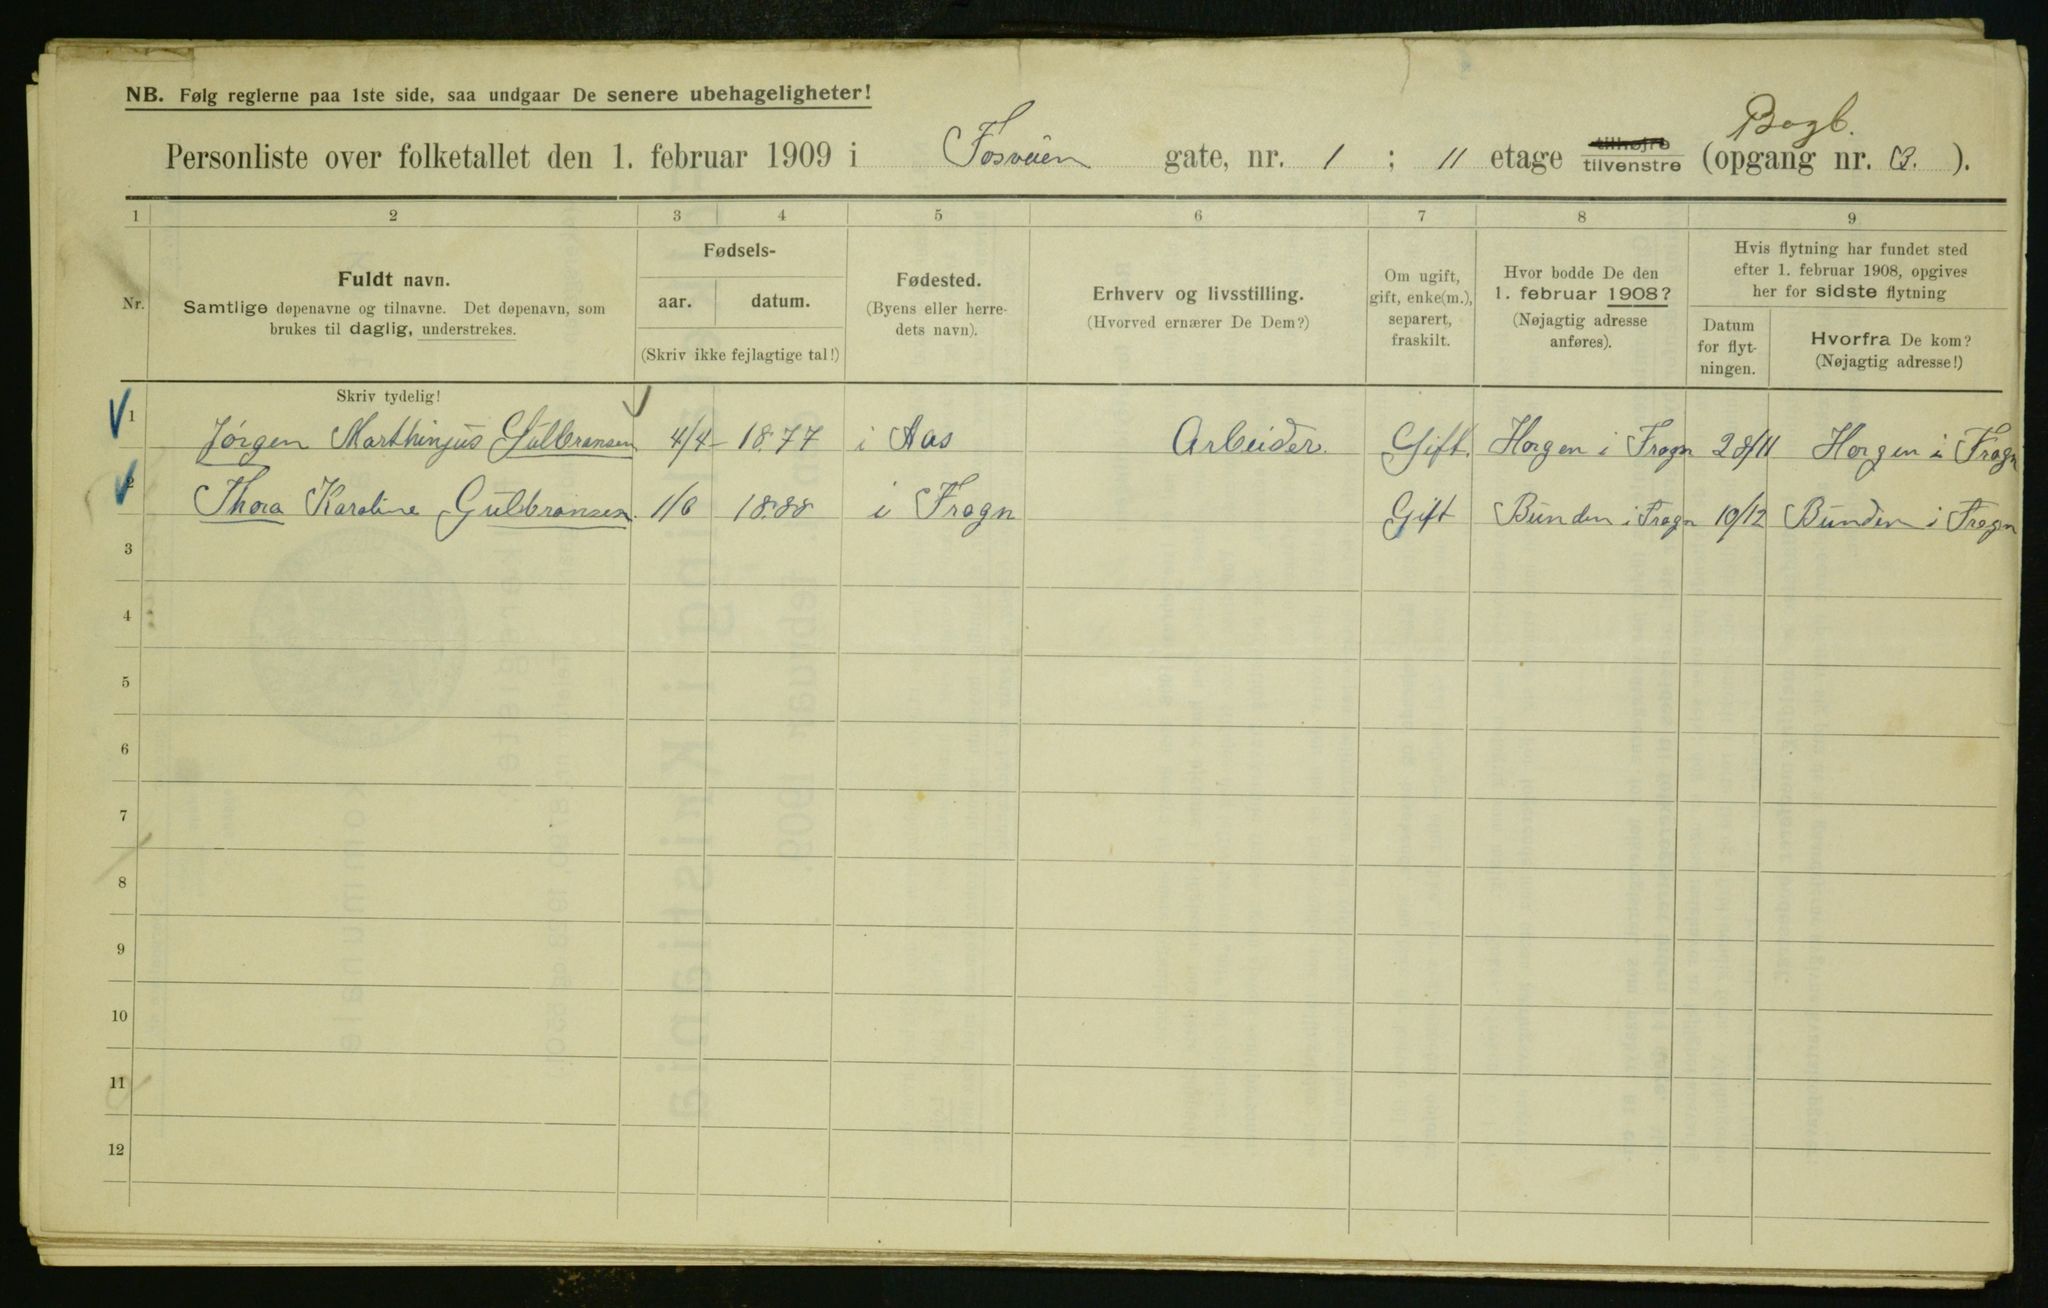 NB. Følg reglerne paa 1ste side, saa undgaar De senere ubehageligheter!
Bagb.
Personliste over folketallet den 1. februar 1909 i Fosveien gate, nr. 1 ; 11 etage tilhøjre tilvenstre (opgang nr. B. ).
1 2 3 4 5 6 7 8 9
Nr.
Fuldt navn.
Samtlige døpenavne og tilnavne. Det døpenavn, som
brukes til daglig, understrekes.
Fødsels-
aar. datum.
(Skriv ikke fejlagtige tal!)
Fødested.
(Byens eller herre-
dets navn).
Erhverv og livsstilling.
(Hvorved ernærer De Dem?)
Om ugift,
gift, enke(m.),
separert,
fraskilt.
Hvor bodde De den
1. februar 1908?
(Nøjagtig adresse
anføres).
Hvis flytning har fundet sted
efter 1. februar 1908, opgives
her for sidste flytning
Datum
for flyt-
ningen.
Hvorfra De kom?
(Nøjagtig adresse!)
Skriv tydelig!
1 Jørgen Marthinjus Gulbransen 4/4 - 1877 i Aas Arbeider. Gift. Horgen i Frogn 28/11 Horgen i Frogn
2 Thora Karoline Gulbransen. 1/6 1888 i Frogn Gift Bunden i Frogn 10/12 Bunden i Frogn
3
4
5
6
7
8
9
10
11
12